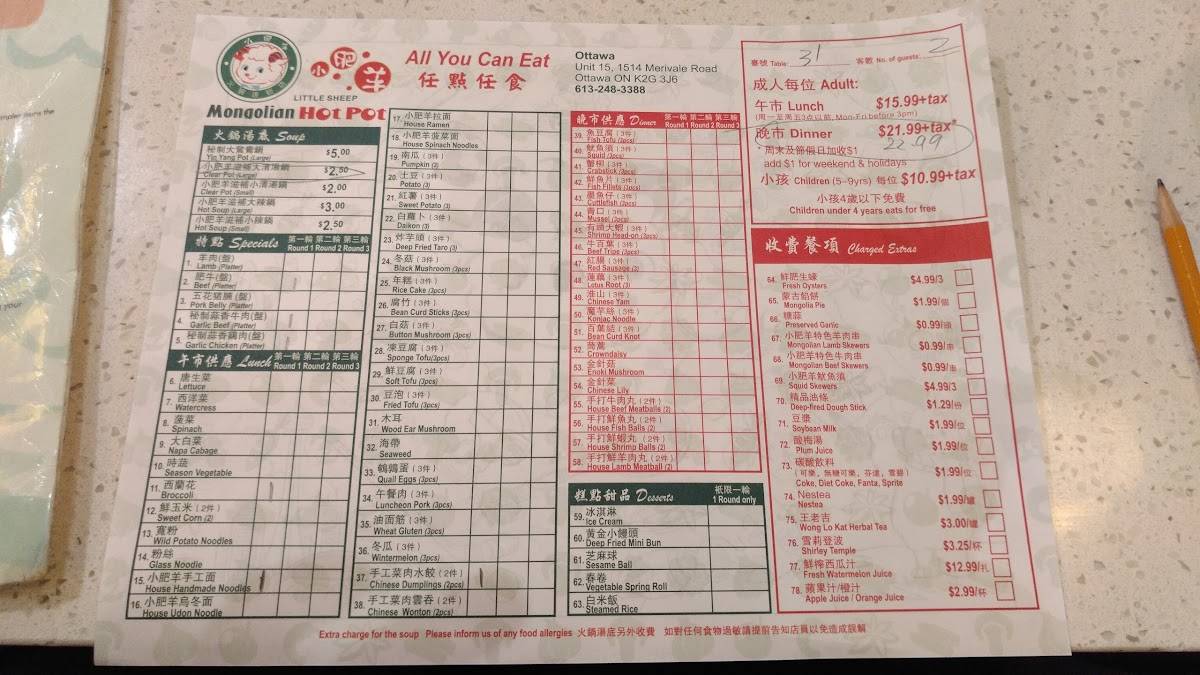 小肥羊
LITTLE SHEEP
Mongolian Hot Pot
All You Can Eat
任點任食
Ottawa
Unit 15, 1514 Merivale Road
Ottawa ON K2G 3J6
613-248-3388
臺號 Table: 31 客數 No. of guests: 2
成人每位 Adult:
午市 Lunch $15.99+tax
(周一至周五3点以前, Mon-Fri before 3pm)
晚市 Dinner $21.99+tax*
22.99
周末及節假日加收$1
add $1 for weekend & holidays
小孩 Children (5–9yrs) 每位 $10.99+tax
小孩4歲以下免費
Children under 4 years eats for free
火鍋湯底 Soup
秘制大鴛鴦鍋 $5.00
Yin Yang Pot (Large)
小肥羊滋補大清湯鍋 $2.50
Clear Pot (Large)
小肥羊滋補小清湯鍋 $2.00
Clear Pot (Small)
小肥羊滋補大辣鍋 $3.00
Hot Soup (Large)
小肥羊滋補小辣鍋 $2.50
Hot Soup (Small)
特點 Specials 第一輪 第二輪 第三輪
Round 1 Round 2 Round 3
1. 羊肉(盤)
Lamb (Platter)
2. 肥牛(盤)
Beef (Platter)
3. 五花猪腩(盤)
Pork Belly (Platter)
4. 秘制蒜香牛肉(盤)
Garlic Beef (Platter)
5. 秘制蒜香鷄肉(盤)
Garlic Chicken (Platter)
午市供應 Lunch 第一輪 第二輪 第三輪
Round 1 Round 2 Round 3
6. 唐生菜
Lettuce
7. 西洋菜
Watercress
8. 菠菜
Spinach
9. 大白菜
Napa Cabage
10. 時蔬
Season Vegetable
11. 西蘭花
Broccoli
12. 鮮玉米 (2件)
Sweet Corn (2)
13. 寬粉
Wild Potato Noodles
14. 粉絲
Glass Noodle
15. 小肥羊手工面
House Handmade Noodles
16. 小肥羊烏冬面
House Udon Noodle
17. 小肥羊拉面
House Ramen
18. 小肥羊菠菜面
House Spinach Noodles
19. 南瓜 (3件)
Pumpkin (3)
20. 土豆 (3件)
Potato (3)
21. 紅薯 (3件)
Sweet Potato (3)
22. 白蘿卜 (3件)
Daikon (3)
23. 炸芋頭 (3件)
Deep Fried Taro (3)
24. 冬菇 (3件)
Black Mushroom (3pcs)
25. 年糕 (3件)
Rice Cake (3pcs)
26. 腐竹 (3件)
Bean Curd Sticks (3pcs)
27. 白菇 (3件)
Button Mushroom (3pcs)
28. 凍豆腐 (3件)
Sponge Tofu(3pcs)
29. 鮮豆腐 (3件)
Soft Tofu (3pcs)
30. 豆泡 (3件)
Fried Tofu (3pcs)
31. 木耳
Wood Ear Mushroom
32. 海帶
Seaweed
33. 鵪鶉蛋 (3件)
Quail Eggs (3pcs)
34. 午餐肉 (3件)
Luncheon Pork (3pcs)
35. 油面筋 (3件)
Wheat Gluten (3pcs)
36. 冬瓜 (3件)
Wintermelon (3pcs)
37. 手工菜肉水餃 (2件)
Chinese Dumplings (2pcs)
38. 手工菜肉雲吞 (2件)
Chinese Wonton (2pcs)
晚市供應 Dinner 第一輪 第二輪 第三輪
Round 1 Round 2 Round 3
39. 魚豆腐 (3件)
Fish Tofu (3pcs)
40. 魷魚須 (3件)
Squid (3pcs)
41. 蟹柳 (3件)
Crabstick (3pcs)
42. 鮮魚片 (3件)
Fish Fillets (3pcs)
43. 墨魚仔 (3件)
Cuttlefish (3pcs)
44. 青口 (3件)
Mussel (3pcs)
45. 有頭大蝦 (3件)
Shrimp Head-on (3pcs)
46. 牛百葉 (3件)
Beef Trips (3pcs)
47. 紅腸 (3件)
Red Sausage (3)
48. 蓮藕 (3件)
Lotus Root (3)
49. 淮山 (3件)
Chinese Yam
50. 魔芋絲 (3件)
Konjac Noodle
51. 百葉結 (3件)
Bean Curd Knot
52. 茼蒿
Crowndaisy
53. 金針菇
Enoki Mushroom
54. 金針菜
Chinese Lily
55. 手打牛肉丸 (2件)
House Beef Meatballs (2)
56. 手打鮮魚丸 (2件)
House Fish Balls (2)
57. 手打鮮蝦丸 (2件)
House Shrimp Balls (2)
58. 手打鮮羊肉丸 (2件)
House Lamb Meatball (2)
糕點甜品 Desserts 祇限一輪
1 Round only
59. 冰淇淋
Ice Cream
60. 黄金小饅頭
Deep Fried Mini Bun
61. 芝麻球
Sesame Ball
62. 春卷
Vegetable Spring Roll
63. 白米飯
Steamed Rice
收費餐項 Charged Extras
64. 鮮肥生蠔 $4.99/3
Fresh Oysters
65. 蒙古餡餅 $1.99/個
Mongolia Pie
66. 糖蒜 $0.99/頭
Preserved Garlic
67. 小肥羊特色羊肉串 $0.99/串
Mongolian Lamb Skewers
68. 小肥羊特色牛肉串 $0.99/串
Mongolian Beef Skewers
69. 小肥羊魷魚須 $4.99/3
Squid Skewers
70. 精品油條 $1.29/份
Deep-fired Dough Stick
71. 豆漿 $1.99/位
Soybean Milk
72. 酸梅湯 $1.99/位
Plum Juice
73. 碳酸飲料 $1.99/位
(可樂, 無糖可樂, 芬達, 雪碧)
Coke, Diet Coke, Fanta, Sprite
74. Nestea $1.99/罐
Nestea
75. 王老吉 $3.00/罐
Wong Lo Kat Herbal Tea
76. 雪莉登波 $3.25/杯
Shirley Temple
77. 鮮榨西瓜汁 $12.99/扎
Fresh Watermelon Juice
78. 蘋果汁/橙汁 $2.99/杯
Apple Juice / Orange Juice
Extra charge for the soup Please inform us of any food allergies 火鍋湯底另外收費 如對任何食物過敏請提前告知店員以免造成誤解